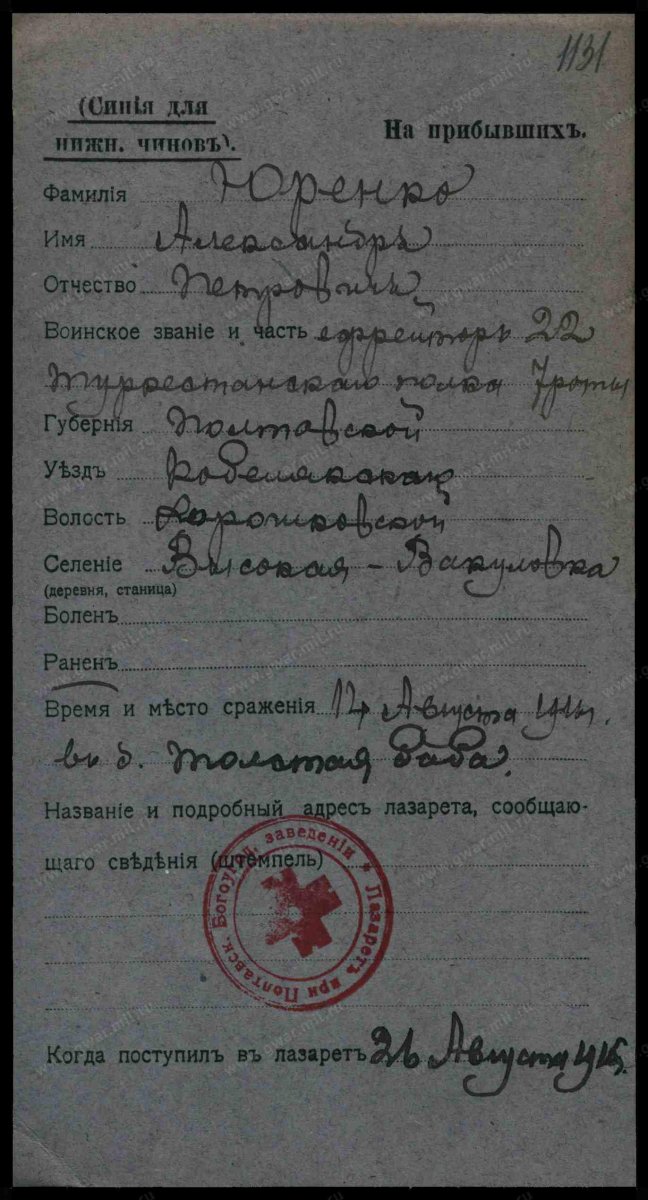 1131
(Синія для
нижн. чиновъ).
На прибывшихъ.
Фамилія Юренко
Имя Александръ
Отчество Петровичъ
Воинское званіе и часть ефрейторъ 22
Туркестанскаго полка 7 роты
Губернія Полтавской
Уѣздъ Кобелякскаго
Волость
Селеніе Высокая - Вакуловка
(деревня, станица)
Боленъ
Раненъ
Время и мѣсто сраженія Августа
Толстая баба.
Названіе и подробный адресъ лазарета, сообщаю-
щаго свѣдѣнія (штемпель)
Лазаретъ при Полтавск. Богоугод. заведеніи
Когда поступилъ въ лазаретъ 26 Августа
www.gwar.mil.ru